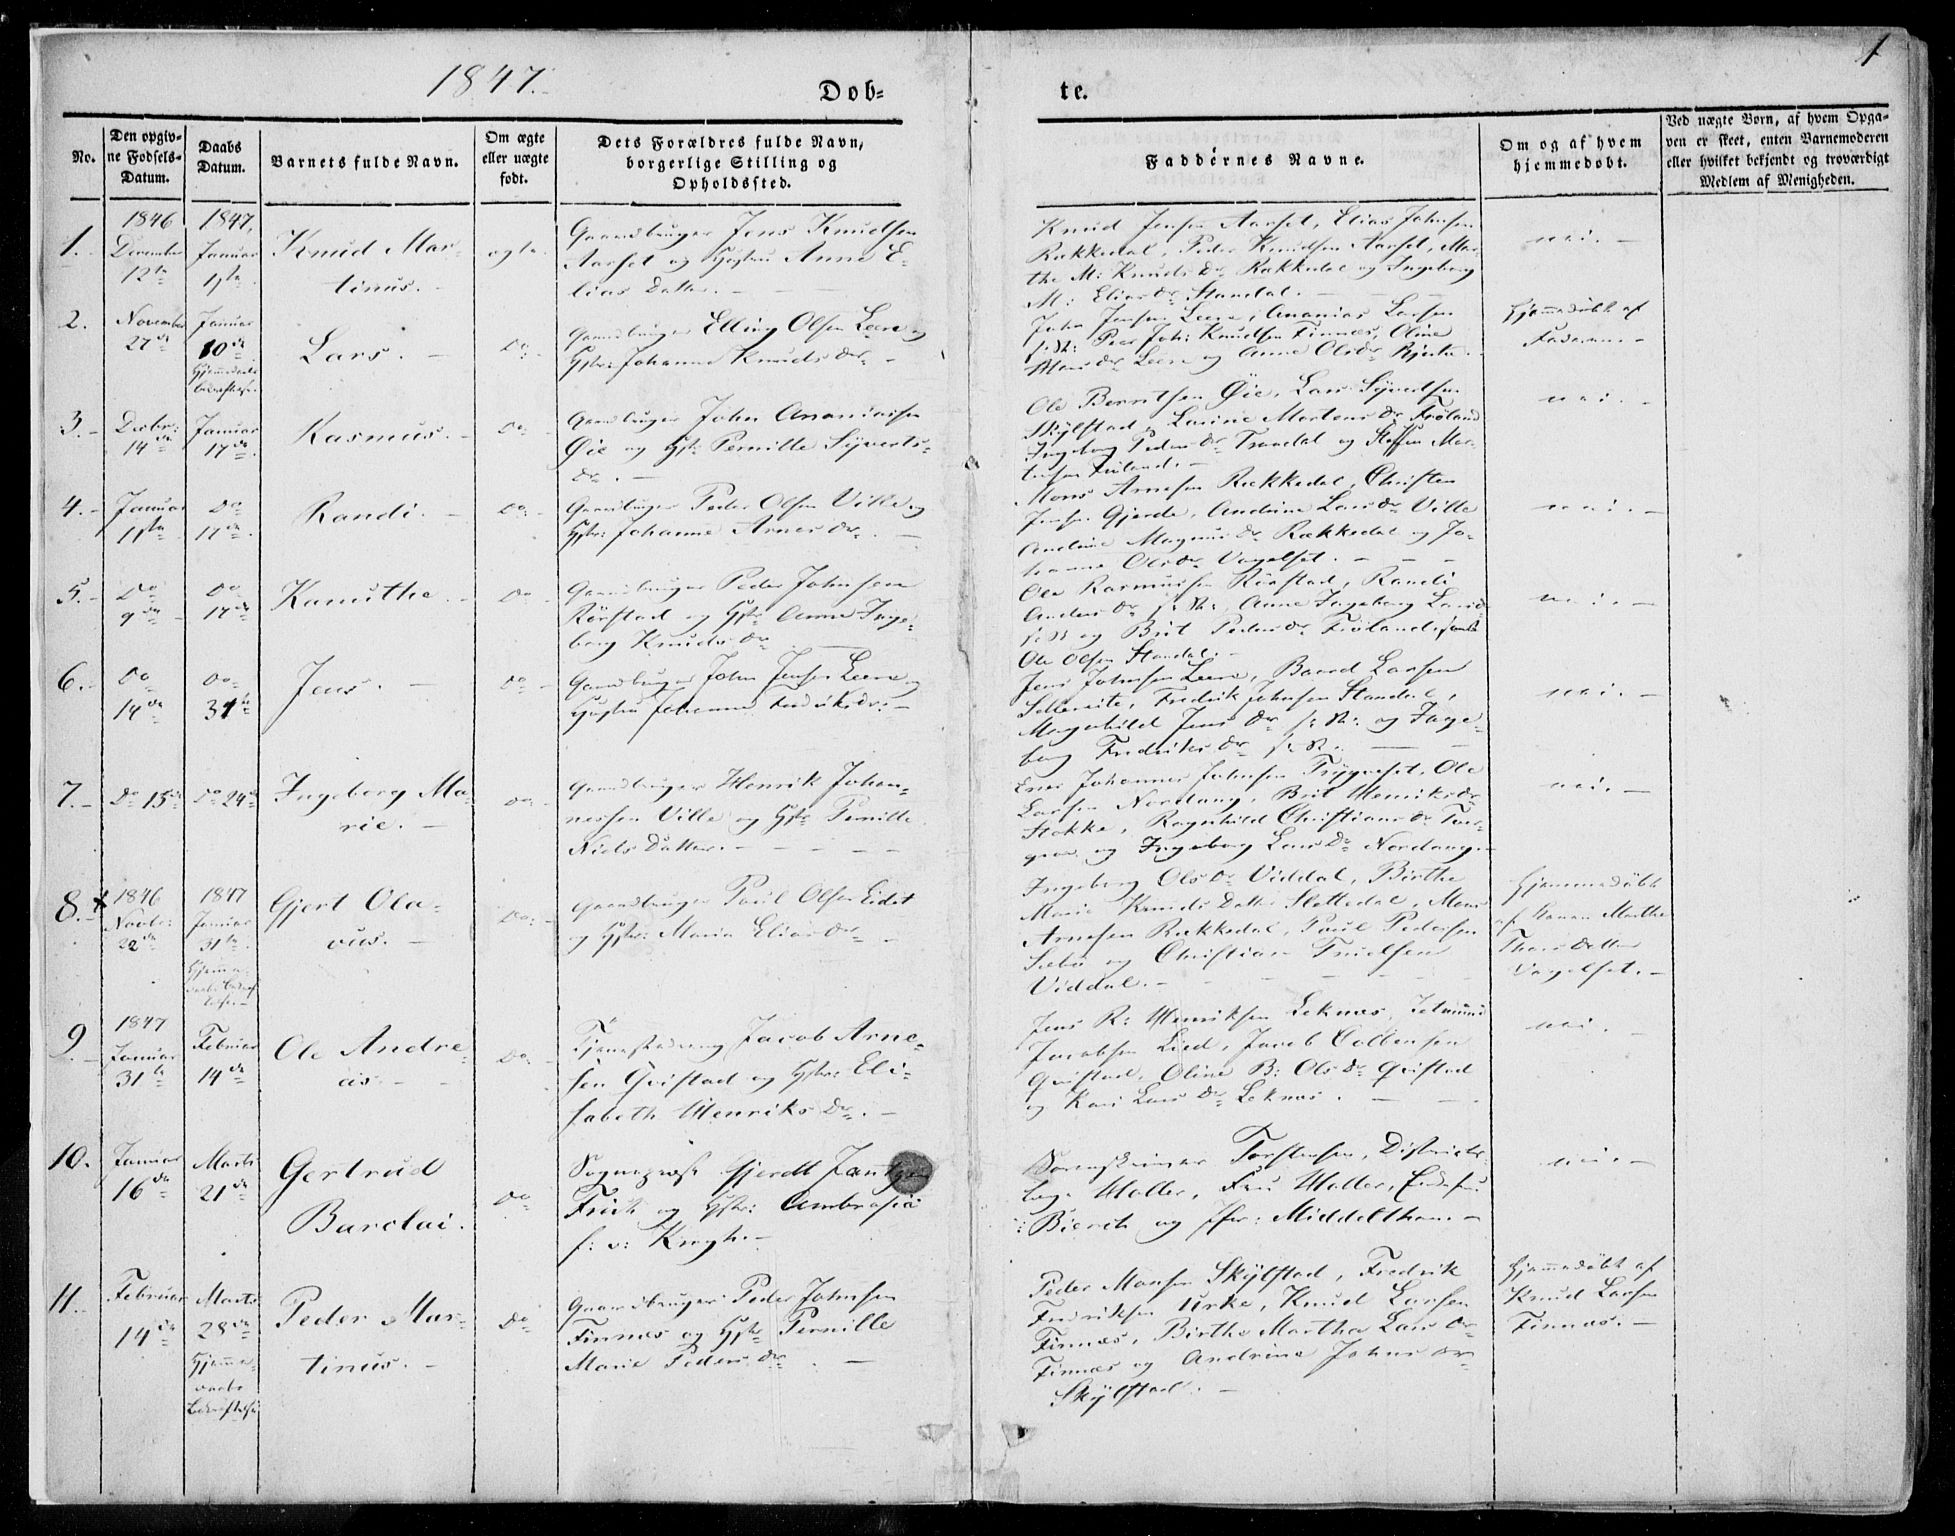 1847.
Døb-
te.
1
No.
Den opgiv-
ne Fødsels-
Datum.
Daabs
Datum.
Barnets fulde Navn.
Om ægte
eller uægte
født.
Dets Forældres fulde Navn,
borgerlige Stilling og
Opholdssted.
Faddernes Navne.
Om og af hvem
hjemmedøbt.
Ved uægte Børn, af hvem Opga-
ven er skeet, enten Barnemoderen
eller hvilket bekjendt og troværdigt
Medlem af Menigheden.
1.
1846
December
12te
1847,
Januar
1ste
Knud Mar-
tinus.
ægte
Gaardbruger Jens Knudsen
Aarset og Hustru Anne E-
lias Datter.
Knud Jensen Aarset, Elias Johnsen
Rækkedal, Peder Knudsen Aarset, Mar-
the M: Knuds Dr Rækkedal og Ingeborg
M: Elias Dr Standal.
nei.
2.
November
27de
Januar
10de
Hjemmedaabs
bekræftelse
Lars.
Do
Gaardbruger Elling Olsen Leere og
Hstr: Johanne Knuds Dr
John Jensen Leere, Ananias Larsen
Peder Joh: Knudsen Finnæs, Oline
Mons Dr Leere og Anne Ols Dr
Hjemmedøbt af
Faderen
3.
Decbr:
14de
Januar
17de
Rasmus.
Do
Gaardbruger John Ananiassen
Øie og Hstr Pernille Syverts-
Dr.
Ole Berntsen Øie, Lars Syvertsen
Skylstad, Larine Mortens Dr Frøland
Ingeborg Peders Dr Trandal og Steffen Mor-
tensen Frøland.
nei.
4.
Januar
11te
Do
17de
Randi.
Do
Gaardbruger Peder Olsen Ville og
Hstr: Johanne Arnes Dr.
Mons Arnesen Rækkedal, Christen
Jensen Gjerde, Andrine Lars Dr Ville
Andrine Magnus Dr Rækkedal og Jo-
hanne Ols Dr Vagelset.
nei.
5.
Do
9de
Do
17de
Kanuthe.
Do
Gaardbruger Peder Johnsen
Rørstad og Hstr Anne Inge-
borg Knuds Dr
Ole Rasmussen Rørstad, Randi
Anders Dr s: St:, Anne Ingeborg Lars Dr
s: St og Brit Peders Dr Frøland, samt
Ole Olsen Standal.
nei.
6.
Do
14de
Do
31te
Jens.
Do
Gaardbruger John Jensen Leere og
Hustru Johanne Fredriks Dr.
Jens Johnsen Leere, Baard Larsen
Sellereite, Fredrik Johnsen Standal,
Magnhild Jens Dr s: St: og Inge-
borg Fredriks Dr s: St.
nei.
7.
Do 15de
Do 24de
Ingeborg Ma-
rie.
Do
Gaardbruger Henrik Johan-
nessen Ville og Hstr Pernille
Niels Datter.
Johannes Johnsen Tryggeset, Ole
Larsen Nordang, Brit Henriks Dr
Stokke, Ragnhild Christians Dr
og Ingeborg Lars Dr Nordang.
nei.
8.
1846
Novbr:
22de
1847
Januar
31te
Hjemme-
daabs Bekræf-
telse.
Gjert Ola-
vus.
Do
Gaardbruger Poul Olsen Eidet
og Hstr: Maria Elias Dr
Ingeborg Ols Dr Viddal, Birthe
Marie Knuds Datter Slettedal, Mons
Arnesen Rækkedal, Poul Pedersen
Sæbø og Christian Truelsen
Viddal.
Hjemmedøbt
af Konen Marthe
Thors Datter
Vagelset.
9.
1847
Januar
31te
Februar
14de
Ole Andre-
as.
Do
Jacob Arne-
sen Qvistad og Hstr: Eli-
sabeth Henriks Dr.
Jens R: Henriksen Leknæs, Jetmund
Jacobsen Lied, Jacob Colbensen
Qvistad, Oline B: Ols Dr Qvistad
og Kari Lars Dr Leknæs.
nei.
10.
Januar
16de
Marts
21de
Gertrud
Barclai.
Do
Sognepræst Gjerdt
Frich og Hstr: Ambrosia
f: v: Krogh.
Sorenskriver Torstensen, Districts-
læge Møller, Fru Møller,
Bierck og Jfr: Middelthon.
nei.
11.
Februar
14de
Marts
28de
Hjemme-
daabs
Bekræftelse
Peder Mar-
tinus.
Do
Gaardbruger Peder Johnsen
Finnæs og Hstr Pernille
Marie Peders Dr
Peder Monsen Skylstad, Fredrik
Fredriksen Urke, Knud Larsen
Finnæs, Birthe Martha Lars Dr
Finnæs og Andrine Johns Dr
Skylstad.
Hjemmedøbt af
Knud Larsen
Finnæs.